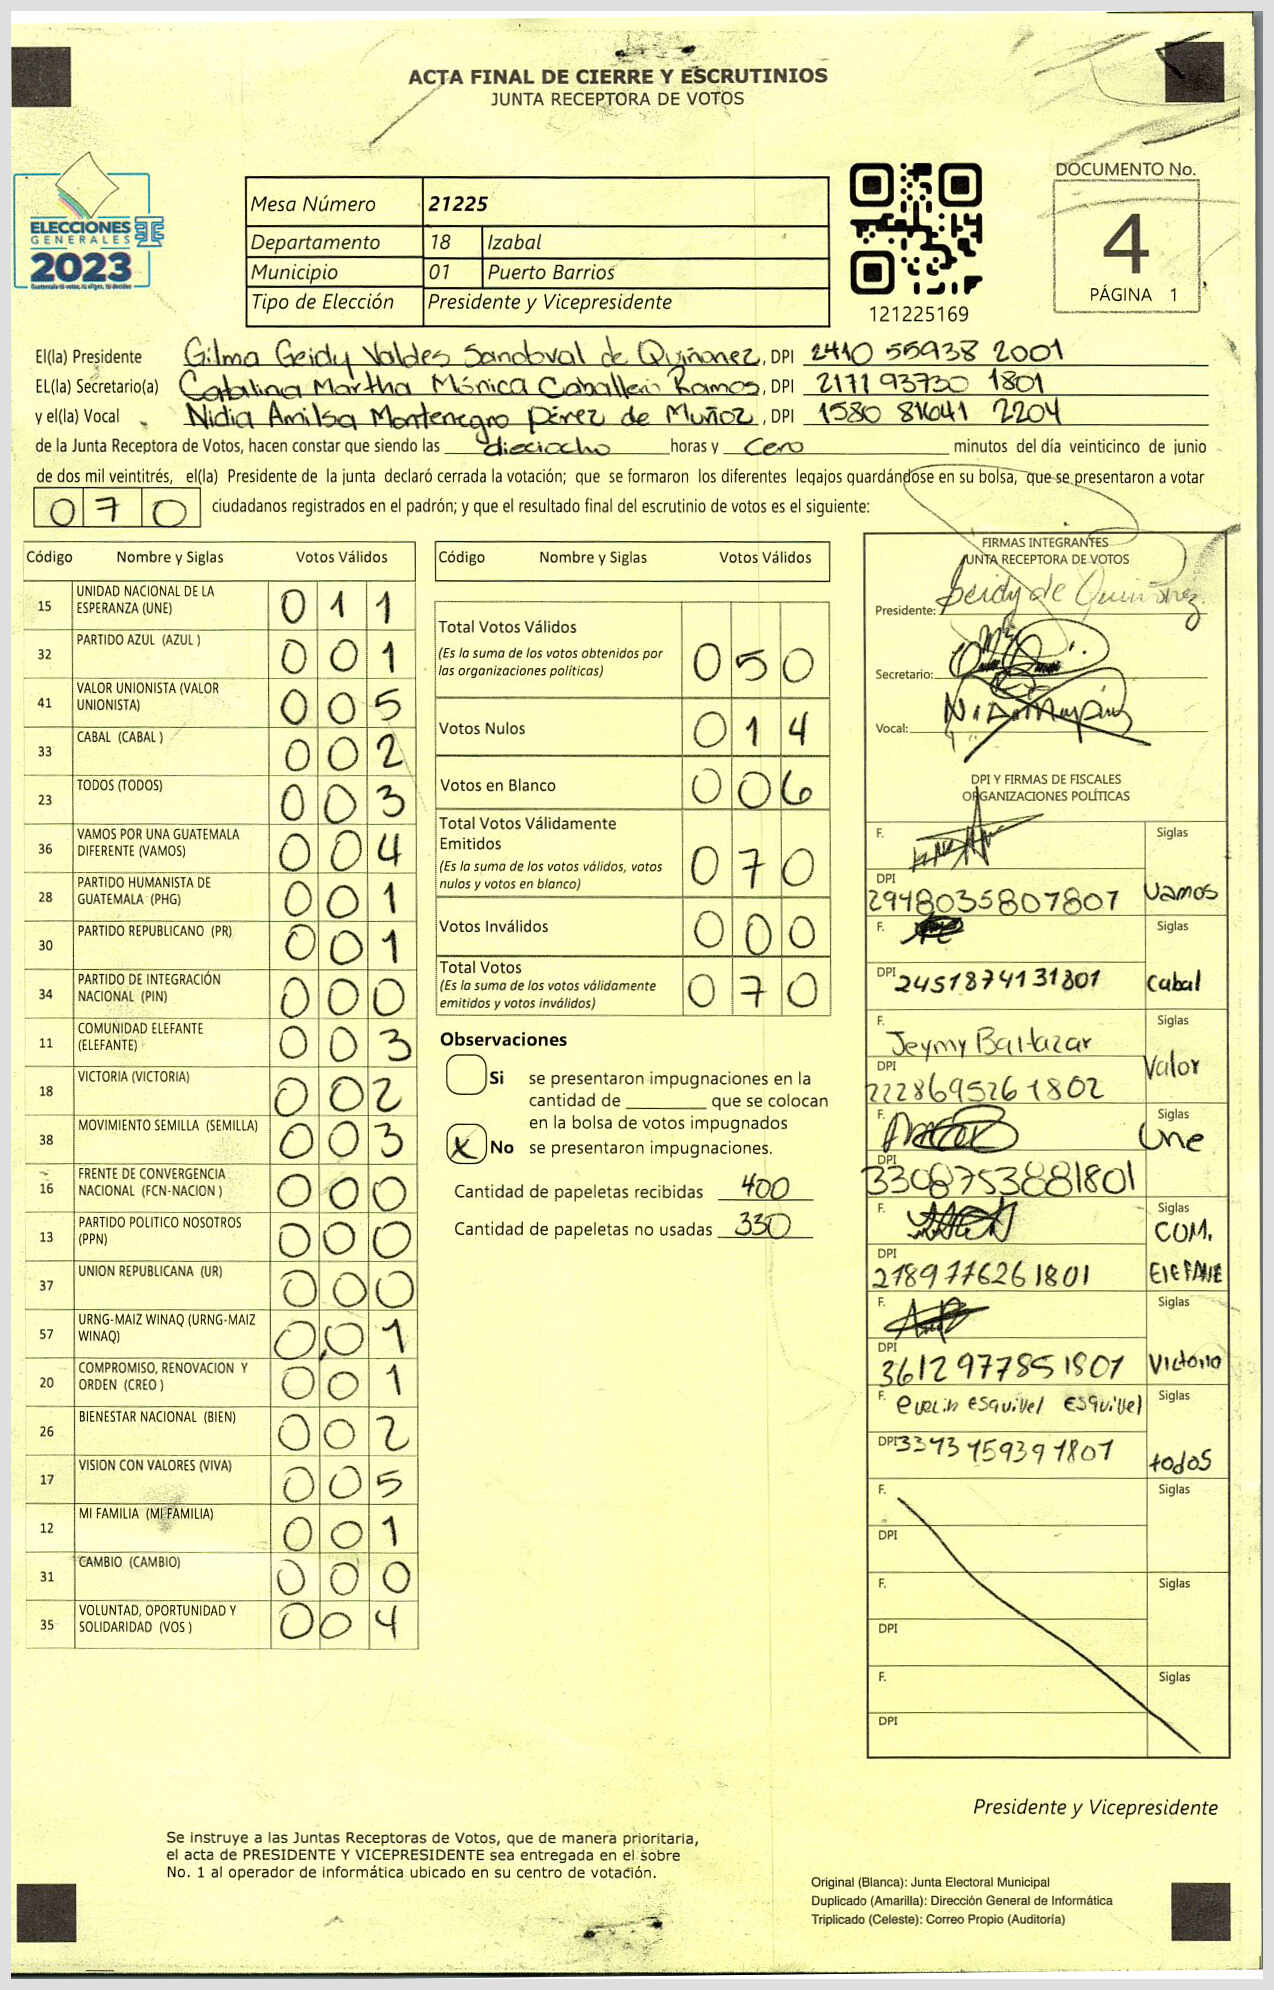 ACTA FINAL DE CIERRE Y ESCRUTINIOS
JUNTA RECEPTORA DE VOTOS
ELECCIONES
GENERALES
2023
Guatemala tú votas, tú eliges, tú decides
Mesa Número 21225
Departamento 18 Izabal
Municipio 01 Puerto Barrios
Tipo de Elección Presidente y Vicepresidente
121225169
DOCUMENTO No.
4
PÁGINA 1
El(la) Presidente Gilma Geidy Valdes Sandoval de Quiñonez, DPI 2410 55938 2001
EL(la) Secretario(a) Catalina Martha Mónica Caballero Ramos, DPI 2171 93730 1801
y el(la) Vocal Nidia Amilsa Montenegro Pérez de Muñoz, DPI 1580 81641 2204
de la Junta Receptora de Votos, hacen constar que siendo las dieciocho horas y cero minutos del día veinticinco de junio
de dos mil veintitrés, el(la) Presidente de la junta declaró cerrada la votación; que se formaron los diferentes legajos guardándose en su bolsa, que se presentaron a votar
070 ciudadanos registrados en el padrón; y que el resultado final del escrutinio de votos es el siguiente:
Código Nombre y Siglas Votos Válidos
15 UNIDAD NACIONAL DE LA
ESPERANZA (UNE) 011
32 PARTIDO AZUL (AZUL ) 001
41 VALOR UNIONISTA (VALOR
UNIONISTA) 005
33 CABAL (CABAL ) 002
23 TODOS (TODOS) 003
36 VAMOS POR UNA GUATEMALA
DIFERENTE (VAMOS) 004
28 PARTIDO HUMANISTA DE
GUATEMALA (PHG) 001
30 PARTIDO REPUBLICANO (PR) 001
34 PARTIDO DE INTEGRACIÓN
NACIONAL (PIN) 000
11 COMUNIDAD ELEFANTE
(ELEFANTE) 003
18 VICTORIA (VICTORIA) 002
38 MOVIMIENTO SEMILLA (SEMILLA) 003
16 FRENTE DE CONVERGENCIA
NACIONAL (FCN-NACION ) 000
13 PARTIDO POLITICO NOSOTROS
(PPN) 000
37 UNION REPUBLICANA (UR) 000
57 URNG-MAIZ WINAQ (URNG-MAIZ
WINAQ) 001
20 COMPROMISO, RENOVACION Y
ORDEN (CREO ) 001
26 BIENESTAR NACIONAL (BIEN) 002
17 VISION CON VALORES (VIVA) 005
12 MI FAMILIA (MI FAMILIA) 001
31 CAMBIO (CAMBIO) 000
35 VOLUNTAD, OPORTUNIDAD Y
SOLIDARIDAD (VOS ) 004
Código Nombre y Siglas Votos Válidos
Total Votos Válidos
(Es la suma de los votos obtenidos por
las organizaciones políticas) 050
Votos Nulos 014
Votos en Blanco 006
Total Votos Válidamente
Emitidos
(Es la suma de los votos válidos, votos
nulos y votos en blanco) 070
Votos Inválidos 000
Total Votos
(Es la suma de los votos válidamente
emitidos y votos inválidos) 070
Observaciones
Si se presentaron impugnaciones en la
cantidad de ________ que se colocan
en la bolsa de votos impugnados
X No se presentaron impugnaciones.
Cantidad de papeletas recibidas 400
Cantidad de papeletas no usadas 330
FIRMAS INTEGRANTES
JUNTA RECEPTORA DE VOTOS
Presidente: Geidy de Quiñonez
Secretario:
Vocal:
DPI Y FIRMAS DE FISCALES
ORGANIZACIONES POLÍTICAS
F. Siglas
DPI 2948035807807 Vamos
F. Siglas
DPI 2451874131801 Cabal
F. Jeymy Baltazar Siglas
DPI 2228695261802 Valor
F. Siglas
DPI 3308753881801 Une
F. Siglas COM.
DPI 2189776261801 ElEFANE
F. Siglas
DPI 3612977851801 Victoria
F. Evelin Esquivel Esquivel Siglas
DPI 3343159391801 todos
F. Siglas
DPI
F. Siglas
DPI
F. Siglas
DPI
Presidente y Vicepresidente
Se instruye a las Juntas Receptoras de Votos, que de manera prioritaria,
el acta de PRESIDENTE Y VICEPRESIDENTE sea entregada en el sobre
No. 1 al operador de informática ubicado en su centro de votación.
Original (Blanca): Junta Electoral Municipal
Duplicado (Amarilla): Dirección General de Informática
Triplicado (Celeste): Correo Propio (Auditoría)